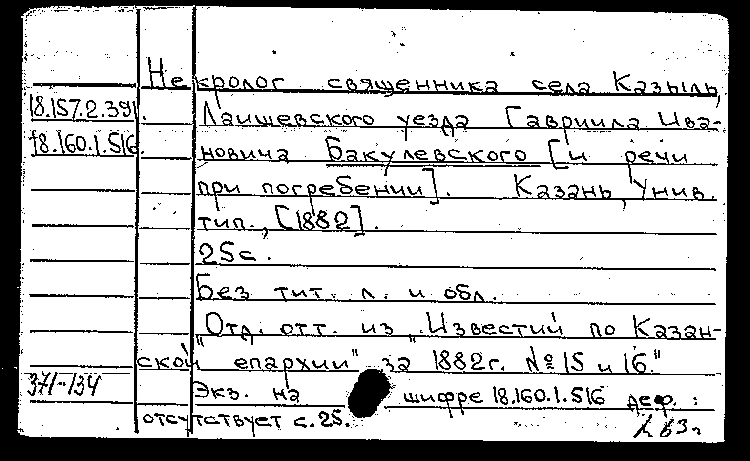 Некролог священника села Казыль,
18.157.2.391. Лаишевского уезда Гавриила Ива-
18.160.1.516. новича Бакулевского [и речи
при погребении]. Казань, Унив.
тип., [1882].
25с.
Без тит. л. и обл.
"Отд. отт. из "Известий по Казан-
ской епархии" за 1882г. № 15 и 16."
371-134 Экз. на шифре 18.160.1.516 деф.:
отсутствует с. 25.